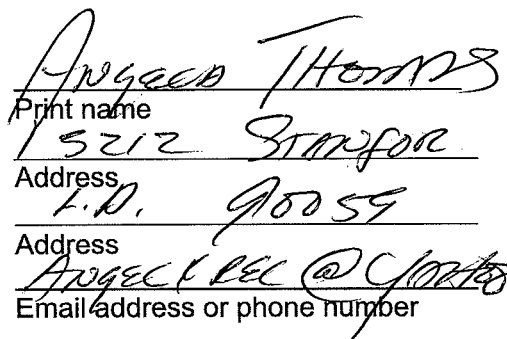 Angela Thomas
Print name
15212 Stanfor
Address
L.A. 90059
Address
@Yahoo
Email address or phone number